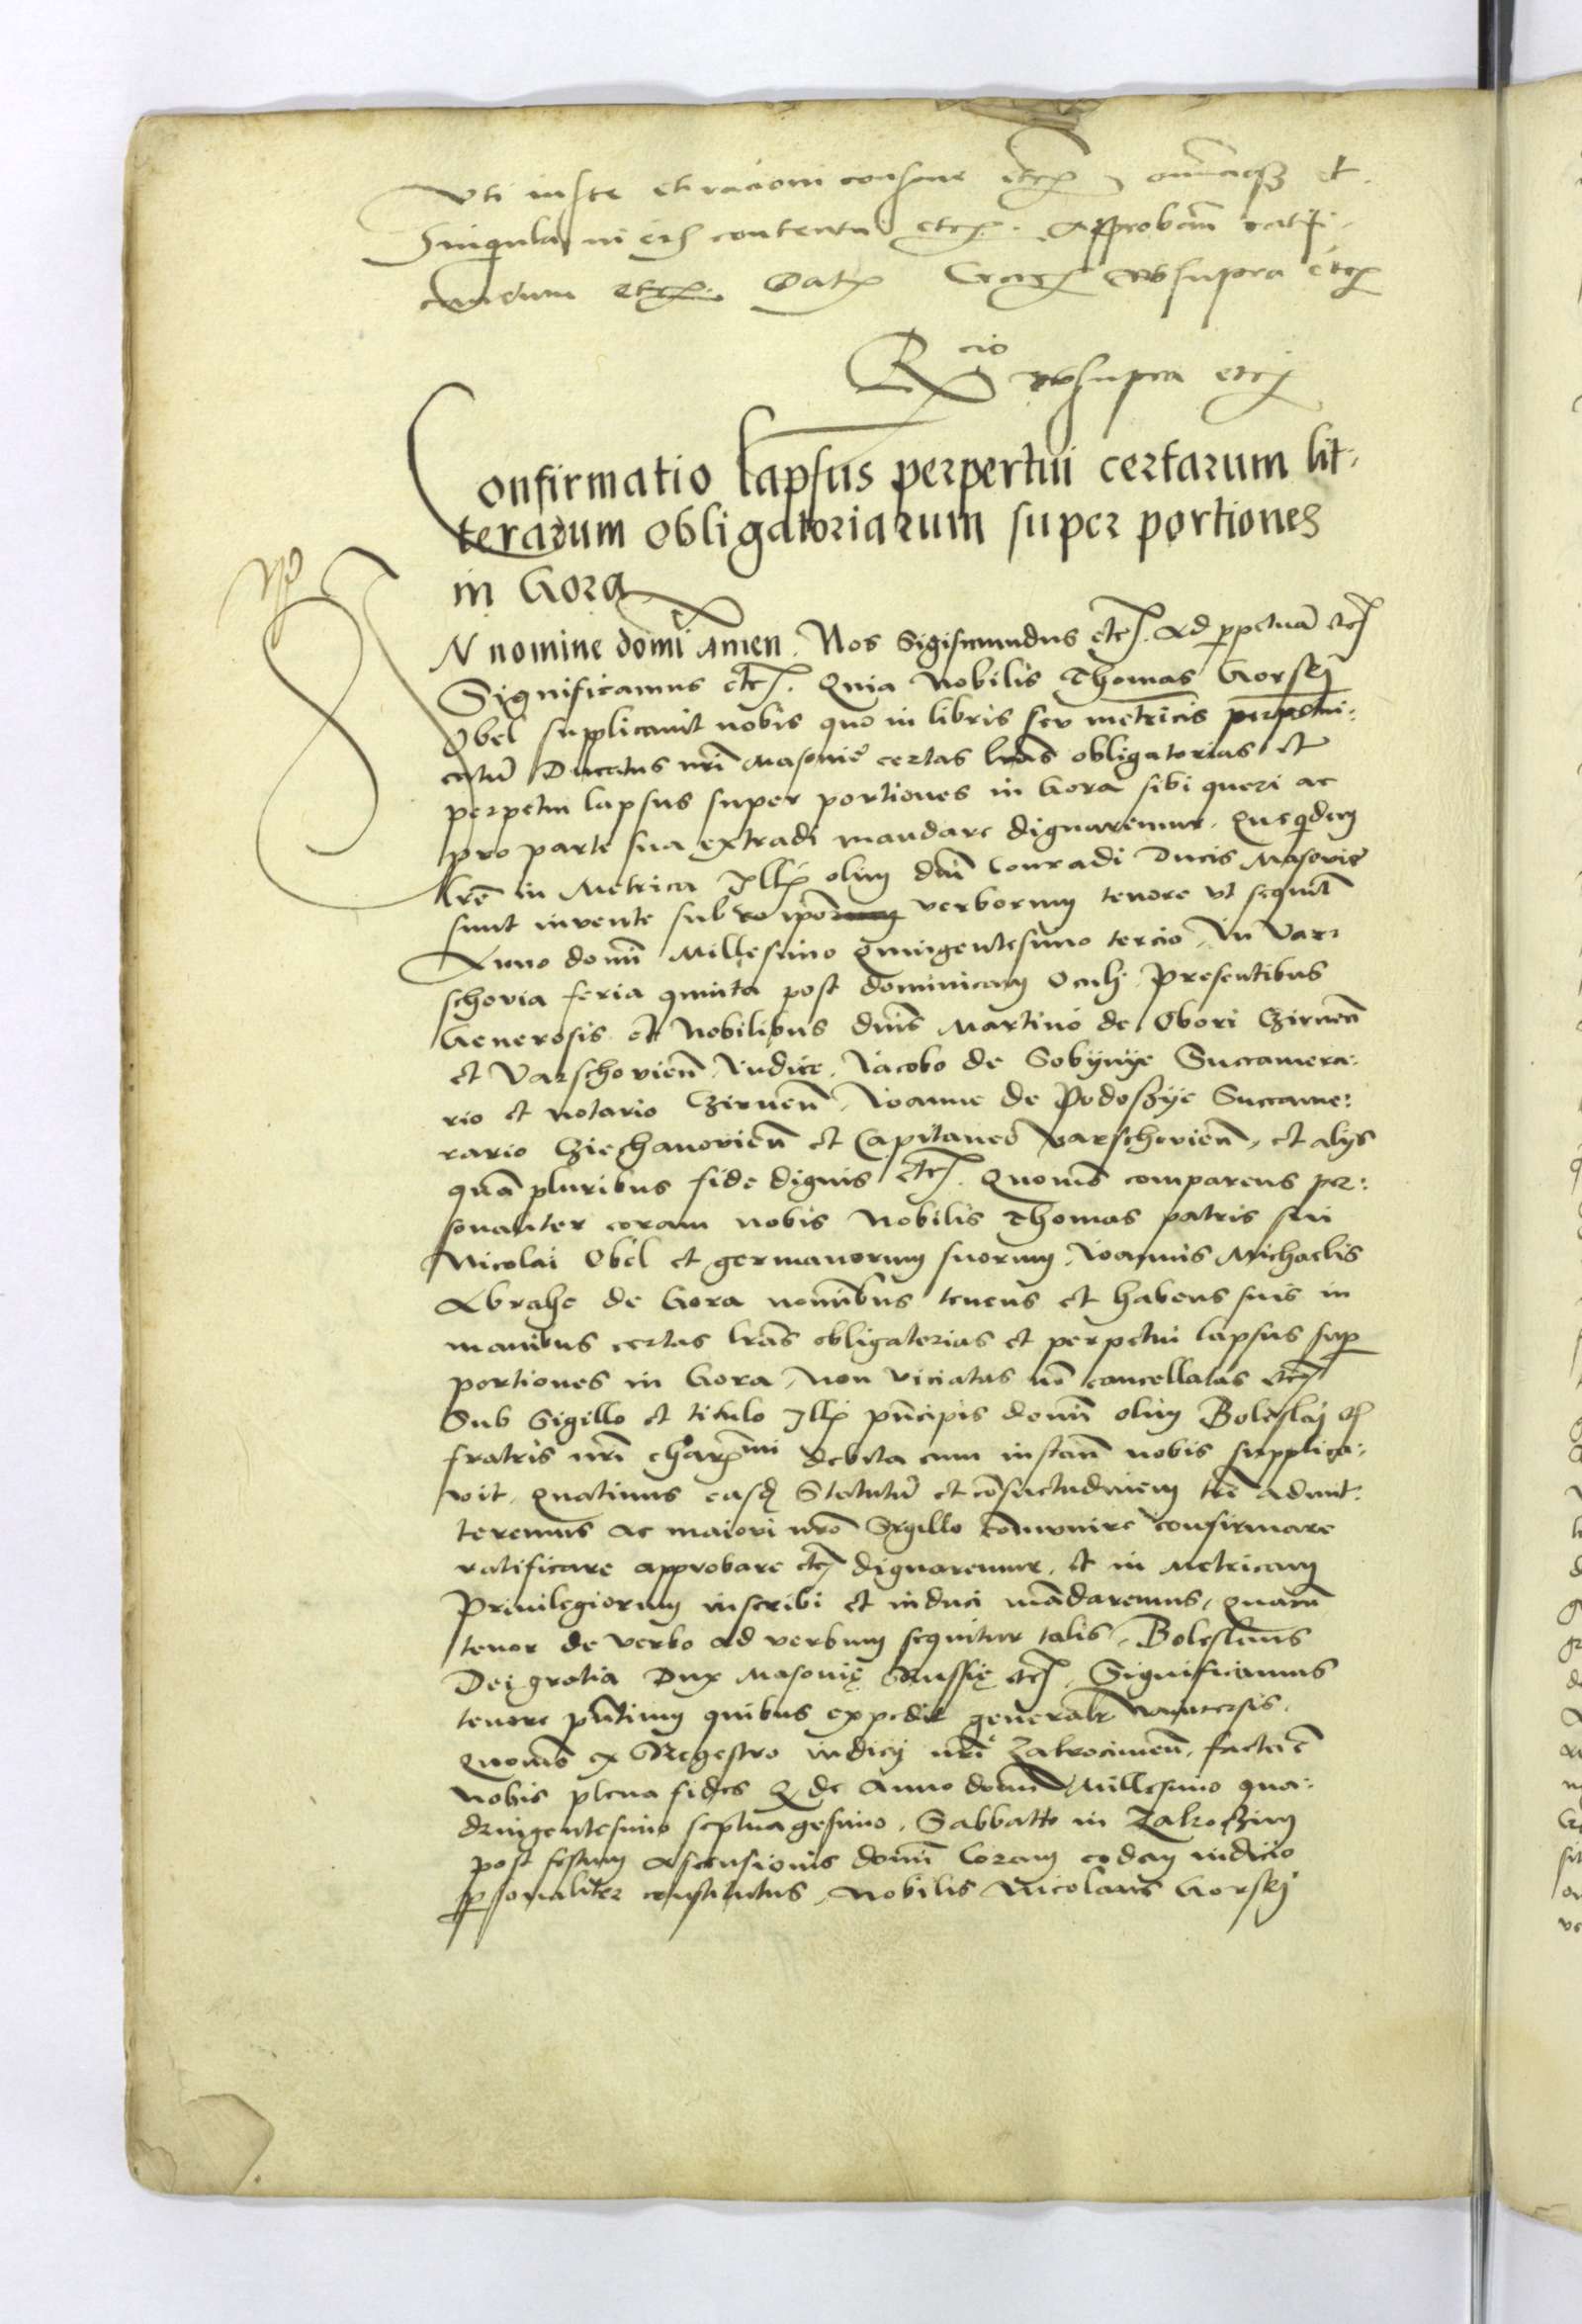 uti iuste et racioni consone etc omniaqz et
Singula in eis contenta etc. Approbam̄ ratifi-
candum etc. Datˀ Crac utsupra etc
Rcio utsupra etc
Confirmatio lapsus perpertui certarum lit:
terarum obligatoriarum super portiones
in Gora
IN nomine domi Amen. Nos Sigismundus etc. Ad perpetuā etc
Significamus etc. Quia Nobilis Thomas Gorskj
Obel supplicauit nobis quo in libris seu metricis
Ducatus nri Masovie certas lras obligatorias et
perpetui lapsus super portiones in Gora sibi queri ac
pro parte sua extradi mandare dignaremur. Quequidem
lre in Metrica Illˀ olim dni Conradi Ducis Masovie
sunt invente sub verborum tenore ut sequitˀ
Anno domi Millesimo quingentesimo tercio, In Var:
schovia feria quinta post dominicam Oculj. Presentibus
Generosis et Nobilibus dnis Martino de Obori Czirnen̄
et Varschovien̄ Iudice, Iacobo de Sobÿnÿe Succamera:
rio et notario Czirnen̄, Ioanne de Podoszÿe Succame:
rario Cziechanovien̄ et Capitaneo Varschovien̄, et alijs
quā pluribus fide dignis etc. Quomō comparens per:
sonaliter coram nobis Nobilis Thomas patris sui
Nicolai Obel et germanorum suorum, Ioannis Michaelis
Abrahe de Gora nomībus tenens et habens suis in
manibus certas lras obligatorias et perpetui lapsus sup
portiones in Gora, Non viciatas nō cancellatas etc
Sub Sigillo et titulo Illˀ pncipis domī olim Boleslaj etc
fratris nri charmi debita cum instan̄ nobis supplica:
vit, Quatinus easdˀ Statutū et cōsuetudinem tre admit:
teremus ac maiori nro Sigillo cōmunire confirmare
ratificare approbare etc dignaremur, et in Metricam
Privilegiorum inscribi et induci mādaremus, quarū
tenor de verbo ad verbum sequitur talis, Boleslaus
Dei gratia Dux Masovie Russie etc. Significamus
tenore pn̄tium quibus expedit generalr Universis,
Quomō ex Regestro iudicij nri Zakrocimen̄, facta ē
nobis plena fides Q de Anno domī Millesimo qua:
dringentesimo septuagesimo, Sabbatto in Zakroczim
post festum Ascensionis domī Coram eodem iudicio
psonaliter constitutus, Nobilis Nicolaus Gorskj